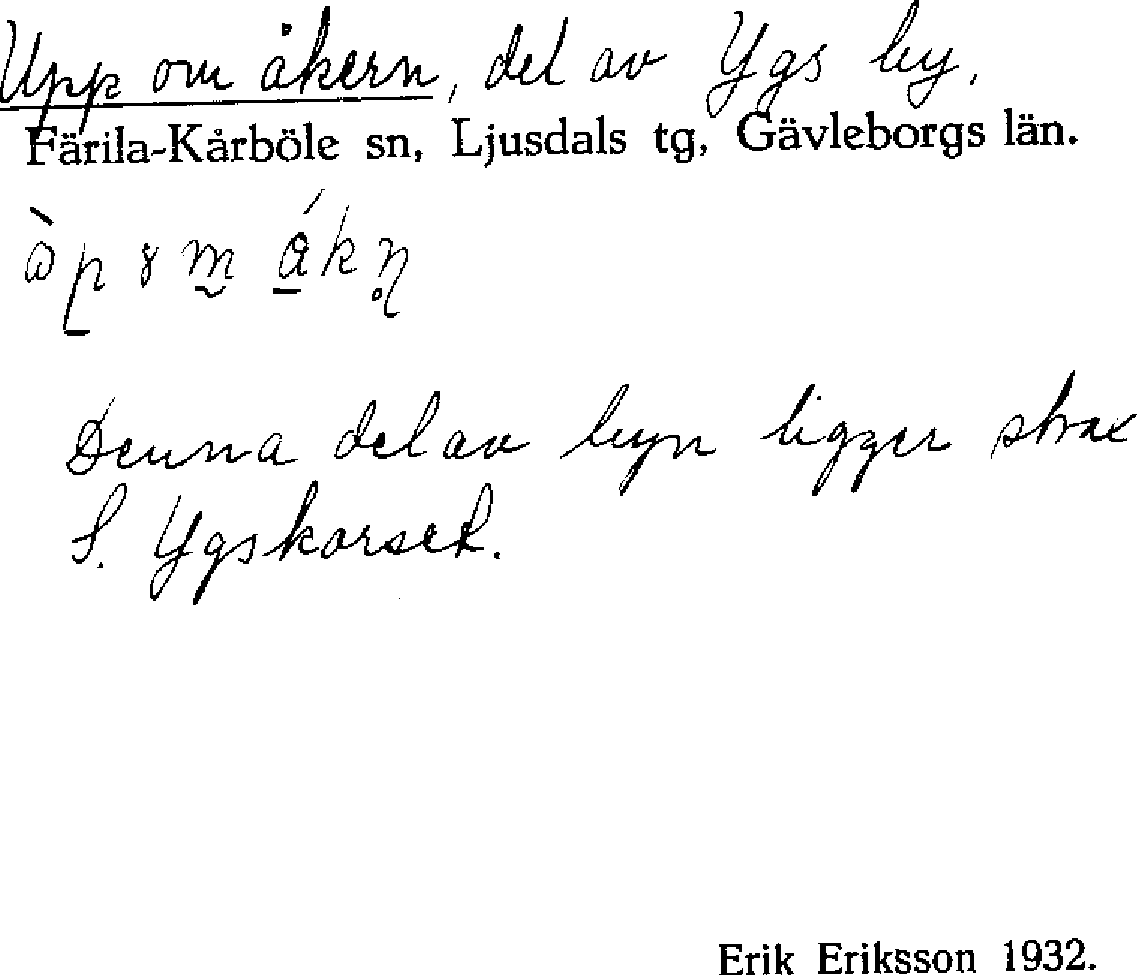 Upp om åkern, del av Ygs by.
Färila-Kårböle sn, Ljusdals tg, Gävleborgs län.
Denna del av byn ligger strax
S. Ygskorset.
Erik Eriksson 1932.